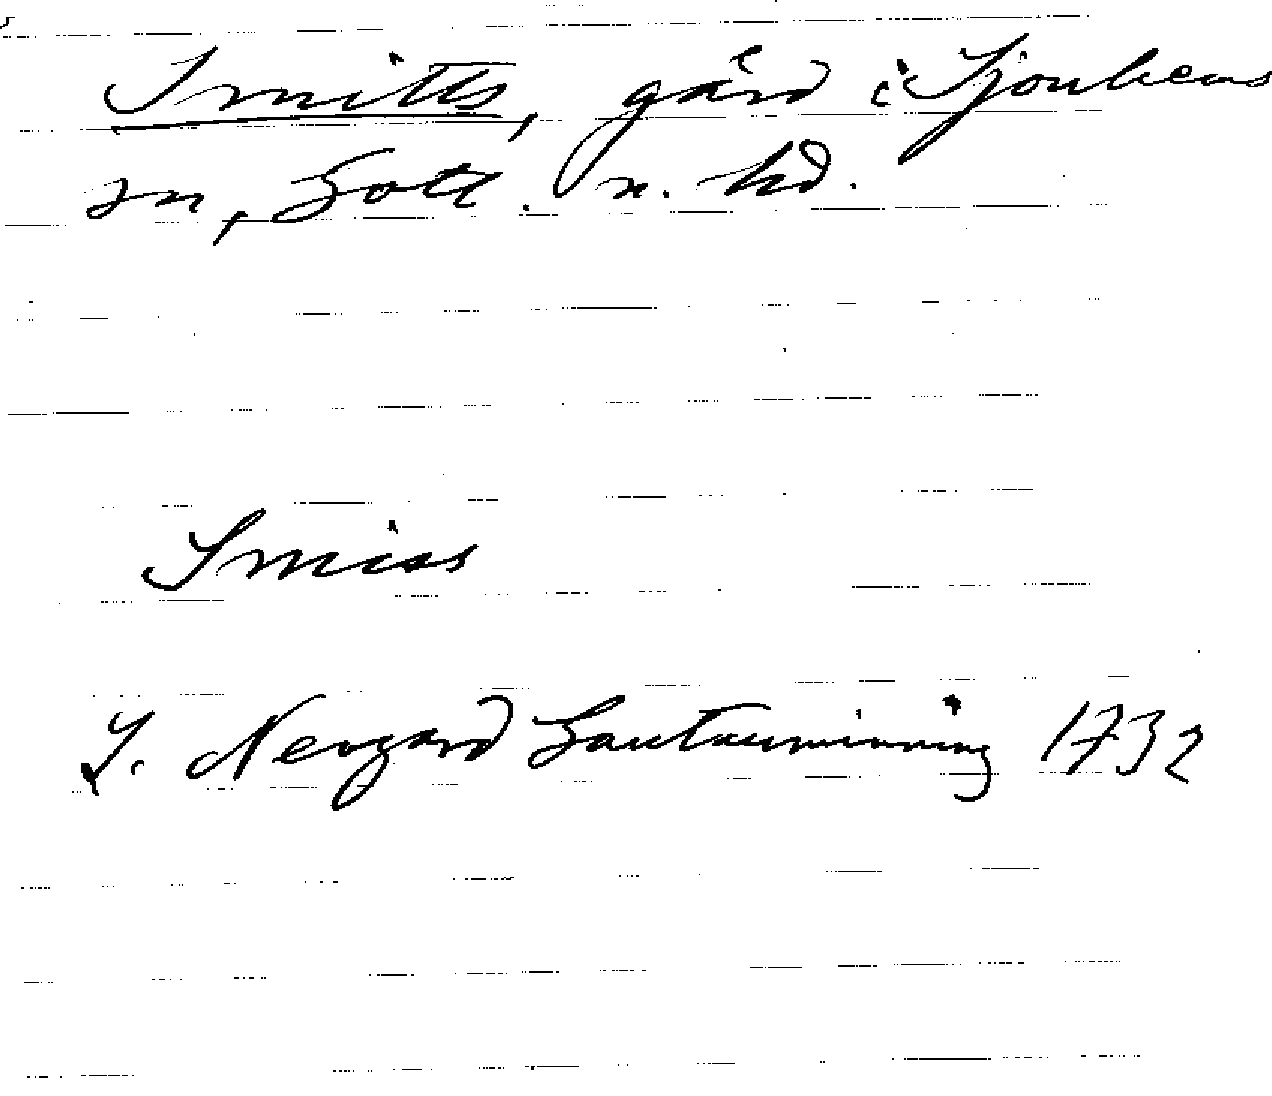 Smitts, gård i Sjonhems
sn, Gotl. n. hd.
Smiss
J. Neogard Gautauminning 1732